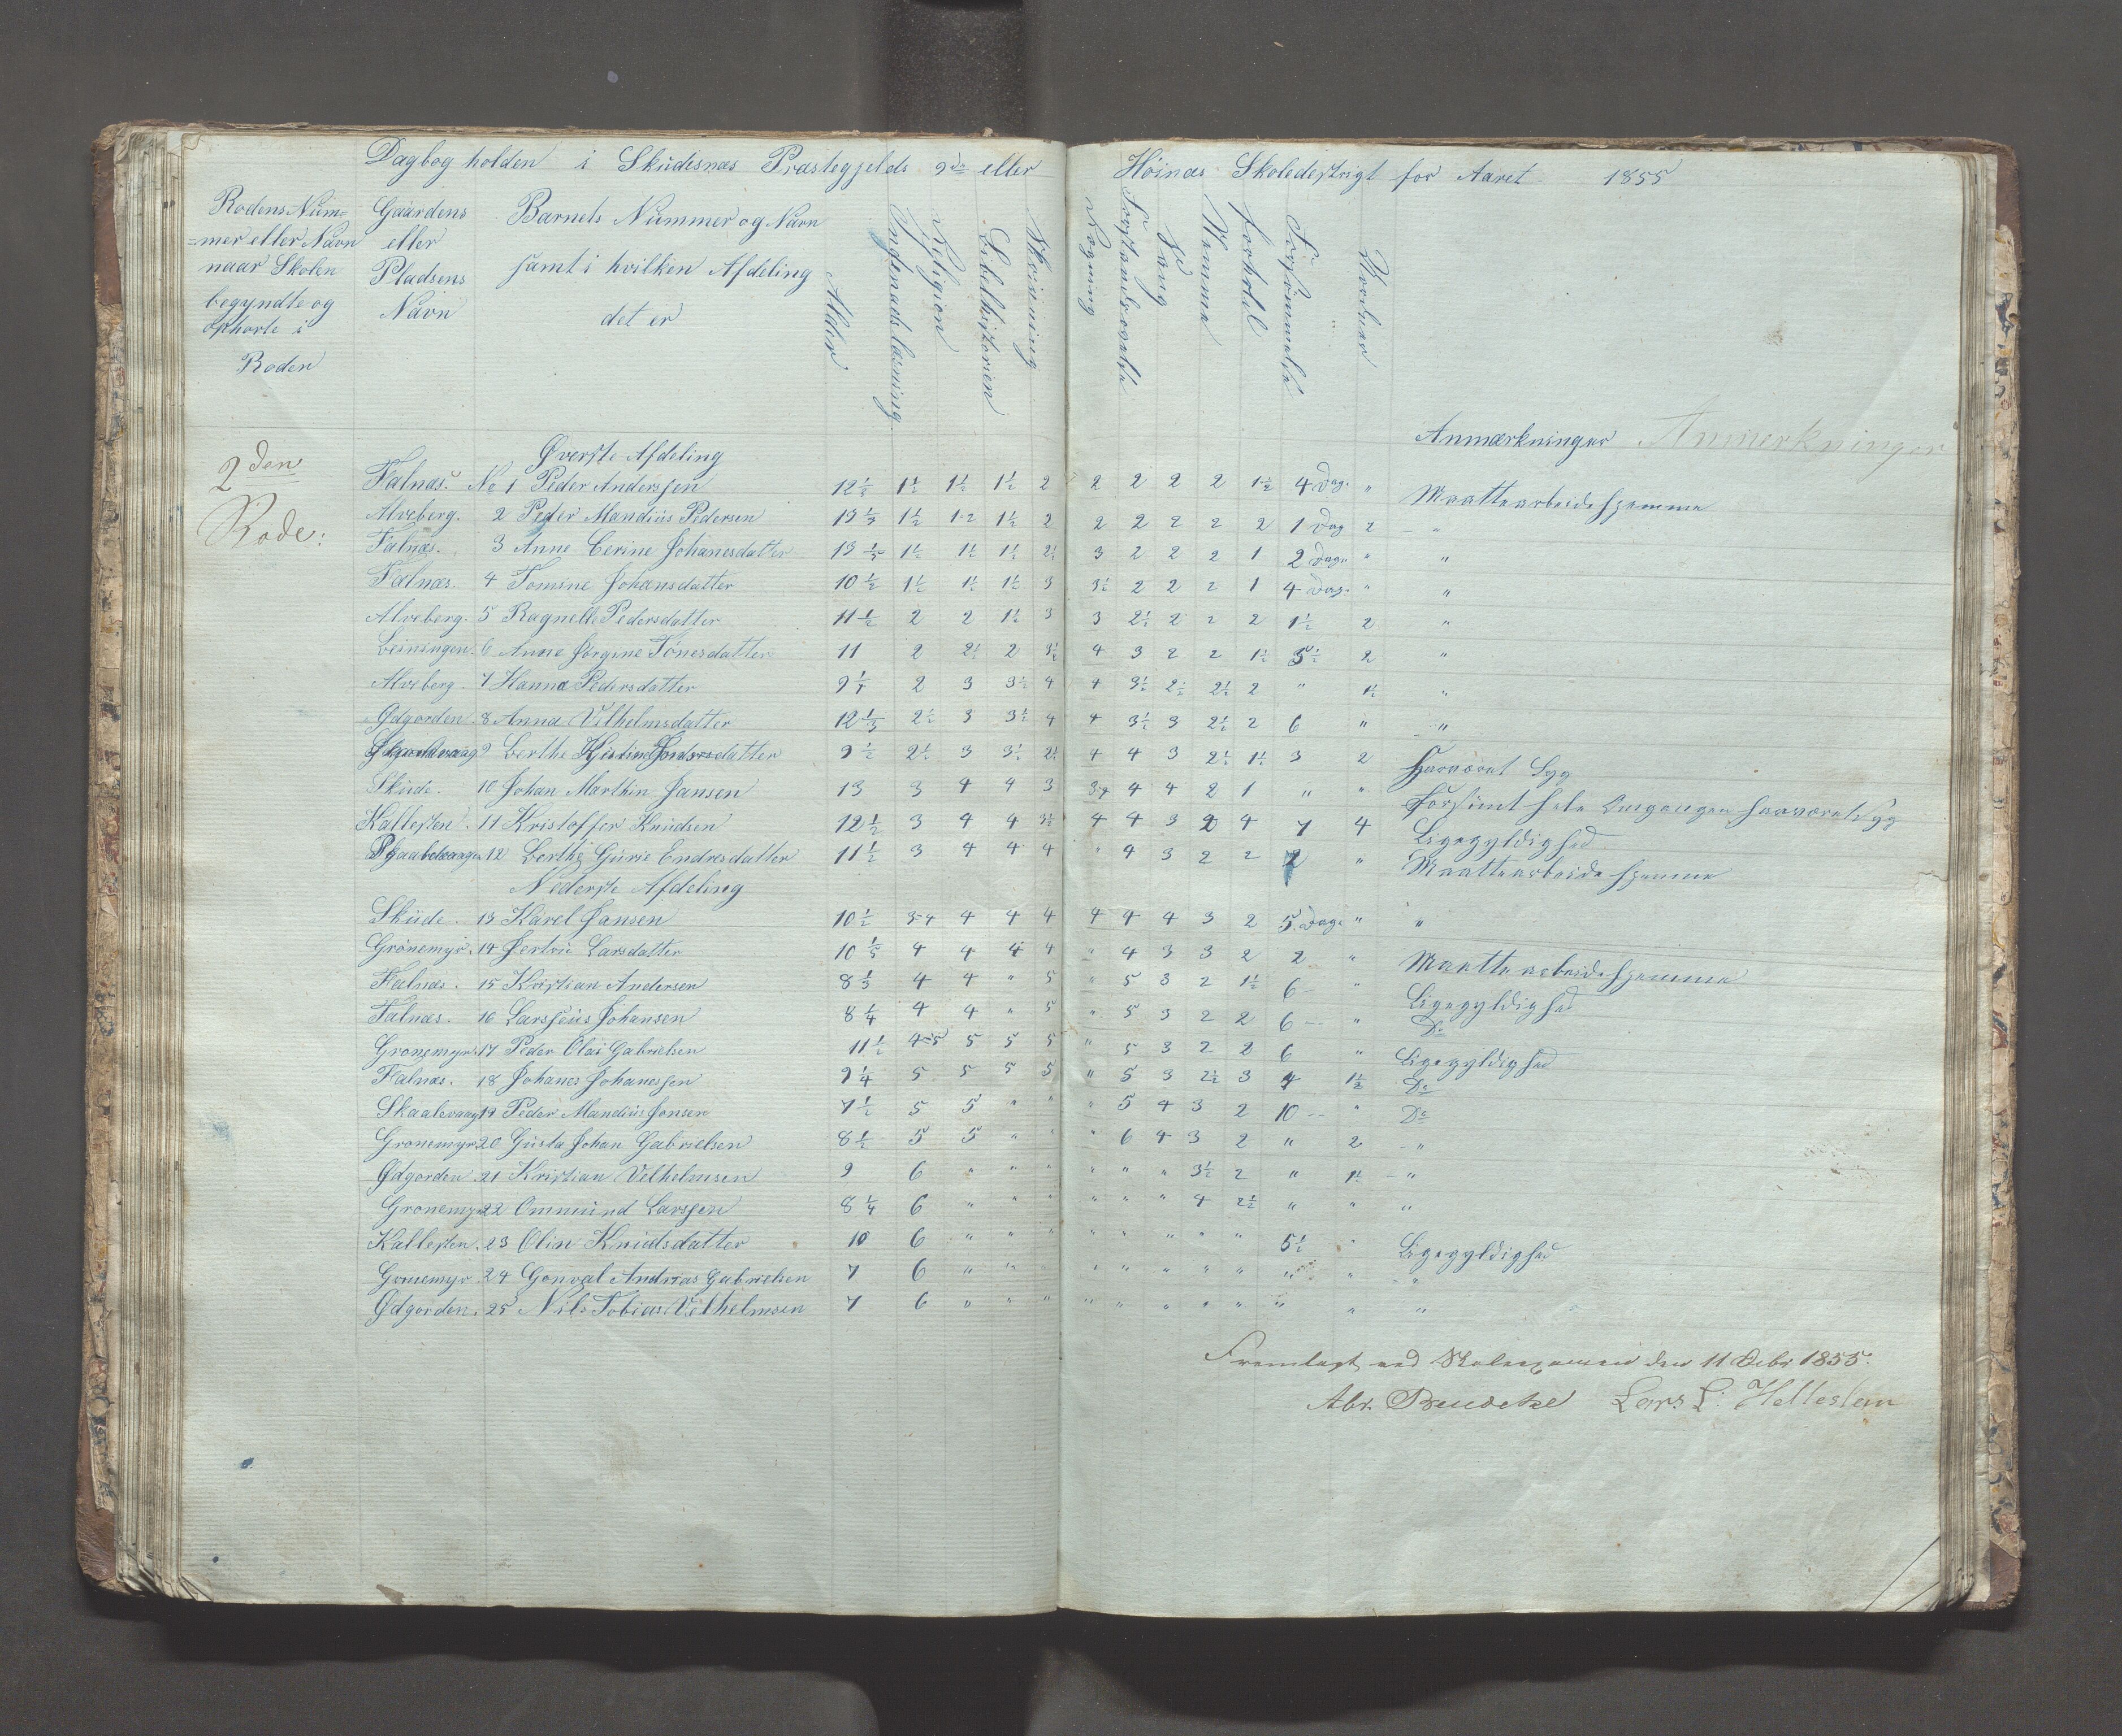 Dagbog holden i Skudesnæs Præstegjelds 2de eller Høinæs Skoledestrigt for Aaret 1855
Rodens Num=
=mer eller Navn
naar Skolen
begyndte og
ophorte i
Roden
Gaardens
eller
Pladsens
Navn
Barnets Nummer og Navn
samt i hvilken Afdeling
det er
Alder
Religion
Bibelhistorien
Skrivning
Regning
Sang
Nemme
Forhold
Forsømmelse
Anmærkninger Anmerkninger
2den
Rode:
Øverste Afdeling
Falnæs. No 1 Peder Anderssen 12½ 1½ 1½ 1½ 2 2 2 2 2 1½ 4 Dag. " Maatte arbeide hjemme
Alveberg. 2 Peder Mandius Pedersen 13⅓ 1½ 1-2 1½ 2 2 2 2 2 2 1 Dag 2 "
Falnæs. 3 Anne Cerine Johanesdatter 13⅕ 1½ 1½ 1½ 2½ 3 2 2 2 1 2 Dag. " "
Falnæs. 4 Tomine Johansdatter 10½ 1½ 1½ 1½ 3 3½ 2 2 2 1 4 Dag. " "
Alveberg. 5 Ragnelle Pedersdatter 11½ 2 2 1½ 3 3 2½ 2 2 2 1½ 2 "
6 Anne Jørgine Tønesdatter 11 2 2½ 2 3½ 4 3 2 2 1½ 5½ 2 "
Alveberg. 7 Hanna Pedersdatter 2 3 3½ 4 4 3½ 2½ 2½ 2 " 1½ "
Ødgorden 8 Anna Vilhelmsdatter 12⅓ 2½ 3 3½ 4 4 3½ 3 2½ 2 6 " "
9 Berthe 9½ 2½ 3 3½ 2½ 4 4 3 2½ 1½ 3 2 Har været Syg
Skude. 10 Johan Marthin Jansen 13 3 4 4 3 3-4 4 4 2 1 " " Forsømt hele Omgangen har været Syg
Kallesten. 11 Kristoffer Knudsen 12½ 3 4 4 3½ 4 4 3 2 4 7 4 Ligegyldighed
12 Berthe Gurie Endresdatter 11½ 3 4 4 4 " 4 3 2 2 " Maatte arbeide hjemme
Nederste Afdeling
Skude. 13 Karel Jansen 10½ 3-4 4 4 4 4 4 4 3 2 5. Dag. " "
Grønemyr. 14 Jertrú Larsdatter 10⅕ 4 4 4 4 " 4 3 3 2 2 " Maatte arbeide hjemme
Falnæs. 15 Kristian Andersen 8⅓ 4 4 " 5 " 5 3 2 1½ 6 - " Ligegyldighed
Falnæs. 16 Larsseus Johansen 8¼ 4 4 " 5 " 5 3 2 2 6 - " Do
Gronemyr. 17 Peder Olai Gabrielsen 11½ 4-5 5 5 5 " 5 3 2 2 6 " Ligegyldighed
Falnæs. 18 Johanes Johanessen 9¼ 5 5 5 5 " 5 3 2½ 3 4 1½ Do
Skaalevaag 19 Peder Mandius Jonsen 7½ 5 5 " " " 5 4 3 2 10 - " Do
Gronemyr 20 Gusta Johan Gabrielsen 8½ 5 5 " " " 6 4 3 2 " 2 "
Ødgorden. 21 Kristian Velhelmsen 9 6 " " " " " " 3½ 2 " 1½ "
Gronemyr 22 Ommund Larssen 8¼ 6 " " " " " " 4 2½ " " "
Kallesten. 23 Olin Knudsdatter 10 6 " " " " " " " " 5½ " Ligegyldighed
Gronemyr 24 Gonval Andreas Gabrielsen 7 6 " " " " " " " " " " "
Ødgorden. 25 Nils Tobias Velhelmsen 7 6 " " " " " " " " " " "
Fremlagt ved Skoleexamen den 11 Debr 1855.
Abr. Lars L. Hellesten